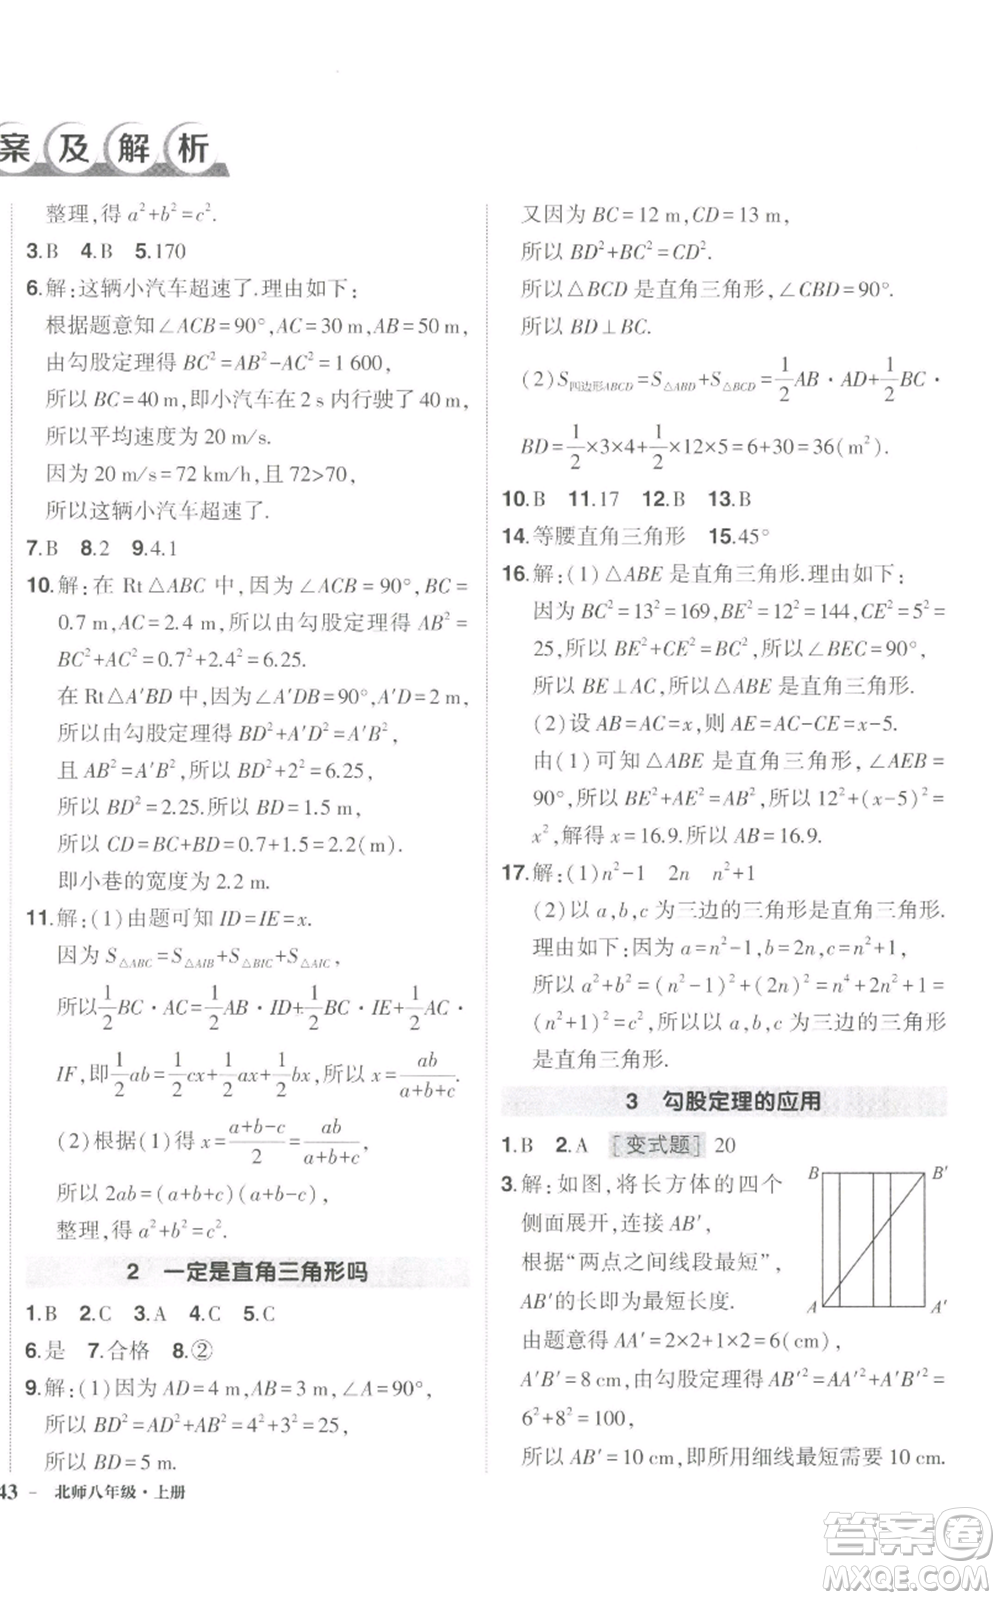 案及解析
整理,得 a²+b²=c².
3.B 4.B 5.170
6.解:这辆小汽车超速了.理由如下:
根据题意知∠ACB=90°,AC=30 m,AB=50 m,
由勾股定理得 BC²=AB²-AC²=1 600,
所以 BC=40 m,即小汽车在 2 s 内行驶了 40 m,
所以平均速度为 20 m/s.
因为 20 m/s=72 km/h,且 72>70,
所以这辆小汽车超速了.
7.B 8.2 9.4.1
10.解:在 Rt△ABC 中,因为∠ACB=90°,BC=
0.7 m,AC=2.4 m,所以由勾股定理得 AB²=
BC²+AC²=0.7²+2.4²=6.25.
在 Rt△A′BD 中,因为∠A′DB=90°,A′D=2 m,
所以由勾股定理得 BD²+A′D²=A′B²,
且 AB²=A′B²,所以 BD²+2²=6.25,
所以 BD²=2.25.所以 BD=1.5 m,
所以 CD=BC+BD=0.7+1.5=2.2(m),
即小巷的宽度为 2.2 m.
11.解:(1)由题可知 ID=IE=x.
因为 S△ABC=S△AIB+S△BIC+S△AIC,
所以1/2BC·AC=1/2AB·ID+1/2BC·IE+1/2AC·
IF,即1/2ab=1/2cx+1/2ax+1/2bx,所以 x=ab/(a+b+c).
(2)根据(1)得 x=(a+b-c)/2=ab/(a+b+c),
所以 2ab=(a+b+c)(a+b-c),
整理,得 a²+b²=c².
2 一定是直角三角形吗
1.B 2.C 3.A 4.C 5.C
6.是 7.合格 8.②
9.解:(1)因为 AD=4 m,AB=3 m,∠A=90°,
所以 BD²=AD²+AB²=4²+3²=25,
所以 BD=5 m.
43 - 北师八年级·上册
又因为 BC=12 m,CD=13 m,
所以 BD²+BC²=CD².
所以△BCD 是直角三角形,∠CBD=90°.
所以 BD⊥BC.
(2)S四边形ABCD=S△ABD+S△BCD=1/2AB·AD+1/2BC·
BD=1/2×3×4+1/2×12×5=6+30=36(m²).
10.B 11.17 12.B 13.B
14.等腰直角三角形 15.45°
16.解:(1)△ABE 是直角三角形.理由如下:
因为 BC²=13²=169,BE²=12²=144,CE²=5²=
25,所以 BE²+CE²=BC²,所以∠BEC=90°,
所以 BE⊥AC,所以△ABE 是直角三角形.
(2)设 AB=AC=x,则 AE=AC-CE=x-5.
由(1)可知△ABE 是直角三角形,∠AEB=
90°,所以 BE²+AE²=AB²,所以 12²+(x-5)²=
x²,解得 x=16.9.所以 AB=16.9.
17.解:(1)n²-1 2n n²+1
(2)以 a,b,c 为三边的三角形是直角三角形.
理由如下:因为 a=n²-1,b=2n,c=n²+1,
所以 a²+b²=(n²-1)²+(2n)²=n⁴+2n²+1=
(n²+1)²=c².所以以 a,b,c 为三边的三角形
是直角三角形.
3 勾股定理的应用
1.B 2.A [变式题] 20
3.解:如图,将长方体的四个
侧面展开,连接 AB′,
根据“两点之间线段最短”,
AB′的长即为最短长度.
B B′
A A′
由题意得 AA′=2×2+1×2=6(cm),
A′B′=8 cm,由勾股定理得 AB′²=AA′²+A′B′²=
6²+8²=100,
所以 AB′=10 cm,即所用细线最短需要 10 cm.
答案卷
MXQE.COM